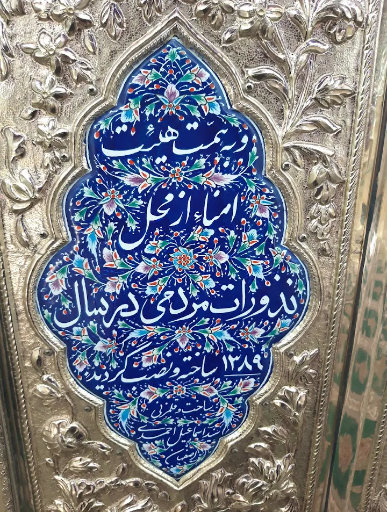 و به همت هیئت
امناء از محل
نذورات مردمی در سال
۱۳۸۹ ساخته و نصب گردید
ساخت و طلاکاری
اصفهان